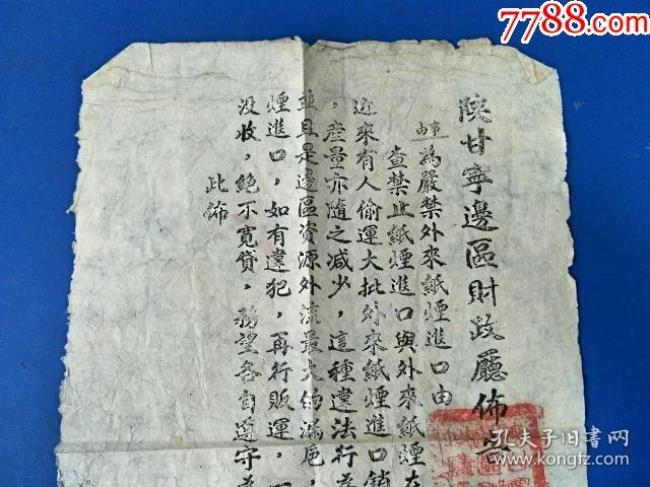 7788.com
陝甘寧邊區財政廳佈告
事由 為嚴禁外來紙煙進口由
查禁止紙煙進口與外來紙煙在
近來有人偷運大批外來紙煙進口銷
，產量亦隨之減少，這種違法行為
並且是邊區資源外流最大的漏巵，
煙進口，如有違犯，再行販運，一
沒收，絕不寬貸，務望各自遵守為
此佈
孔夫子旧书网
kongfz.com